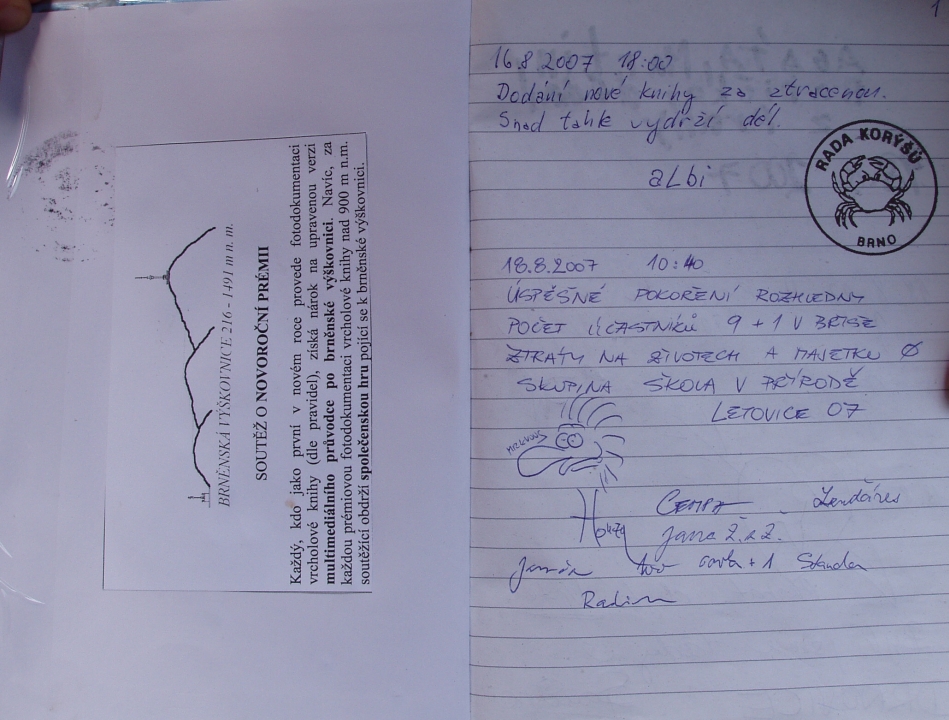 BRNĚNSKÁ VÝŠKOVNICE 216 - 1491 m n. m.
SOUTĚŽ O NOVOROČNÍ PRÉMII
Každý, kdo jako první v novém roce provede fotodokumentaci
vrcholové knihy (dle pravidel), získá nárok na upravenou verzi
multimediálního průvodce po brněnské výškovnici. Navíc, za
každou prémiovou fotodokumentaci vrcholové knihy nad 900 m n.m.
soutěžící obdrží společenskou hru pojící se k brněnské výškovnici.
1
16.8.2007 18:00
Dodání nové knihy za ztracenou.
Snad tahle vydrží dél.
aLbi
RADA KORÝŠŮ
BRNO
18.8.2007 10:40
ÚSPĚŠNÉ POKOŘENÍ ROZHLEDNY
POČET ÚČASTNÍKŮ 9 + 1 V BŘIŠE
ZTRÁTY NA ŽIVOTECH A MAJETKU Ø
SKUPINA ŠKOLA V PŘÍRODĚ
LETOVICE 07
Jana Ž. a Ž.
+ 1 Standa
Radim